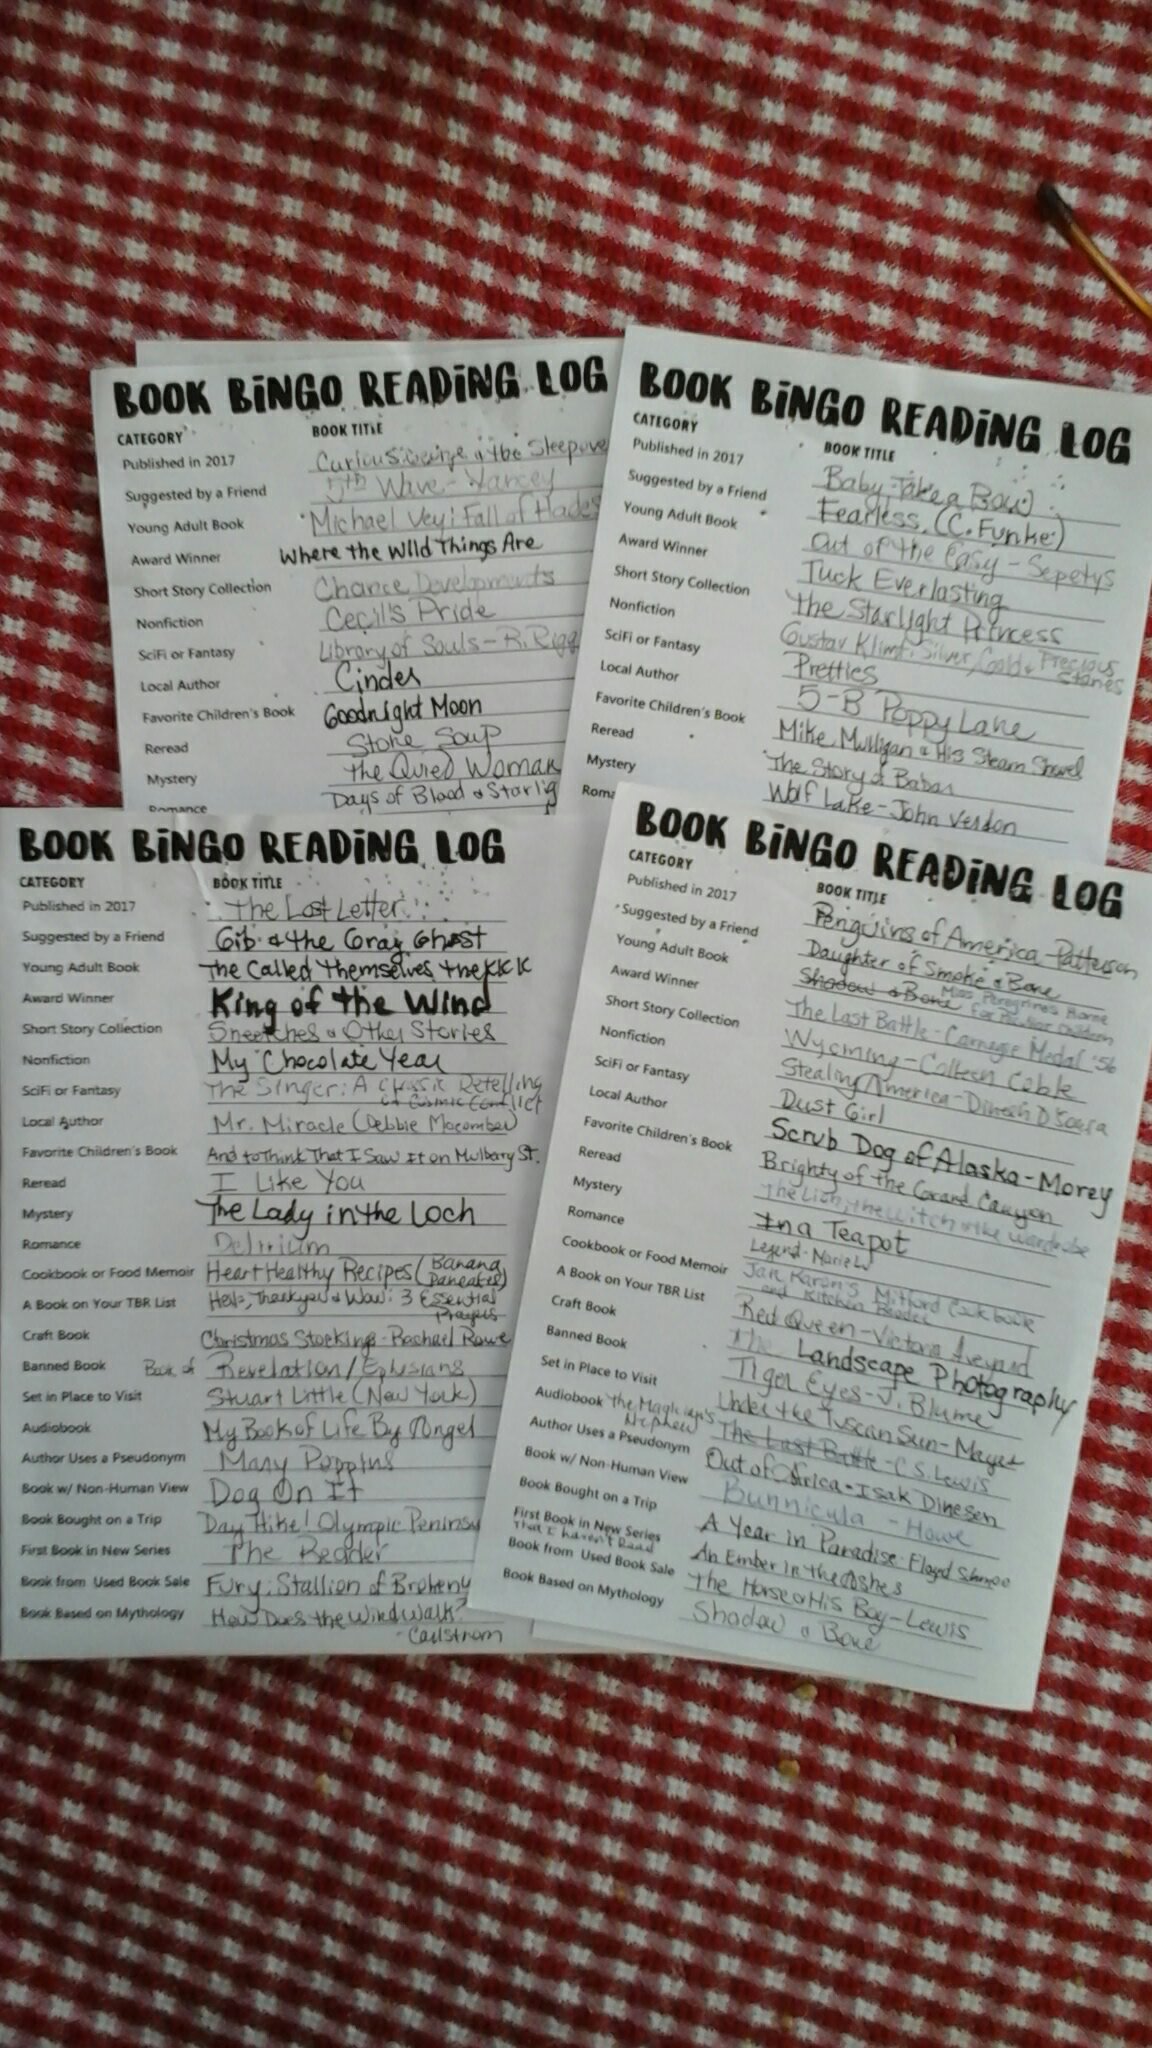 BOOK BINGO READING LOG
CATEGORY BOOK TITLE
Published in 2017 Curious George & the Sleepove
Suggested by a Friend 5th Wave - Yancey
Young Adult Book Michael Vey: Fall of Hades
Award Winner Where the Wild Things Are
Short Story Collection Chance Developments
Nonfiction Cecil's Pride
SciFi or Fantasy Library of Souls - R. Rigg
Local Author Cinder
Favorite Children's Book Goodnight Moon
Reread Stone Soup
Mystery The Quiet Woman
Romance Days of Blood & Starlig
BOOK BINGO READING LOG
CATEGORY BOOK TITLE
Published in 2017 Baby, Take a Bow
Suggested by a Friend Fearless (C. Funke)
Young Adult Book Out of the Easy - Sepetys
Award Winner Tuck Everlasting
Short Story Collection The Starlight Princess
Nonfiction Gustav Klimt: Silver, Gold & Precious Stones
SciFi or Fantasy Pretties
Local Author 5-B Poppy Lane
Favorite Children's Book Mike Mulligan & His Steam Shovel
Reread The Story of Babar
Mystery Wolf Lake - John Verdon
Roma
BOOK BINGO READING LOG
CATEGORY BOOK TITLE
Published in 2017 The Lost Letter
Suggested by a Friend Gib & the Gray Ghost
Young Adult Book The Called Themselves the KKK
Award Winner King of the Wind
Short Story Collection Sneetches & Other Stories
Nonfiction My Chocolate Year
SciFi or Fantasy The Singer: A Classic Retelling
of Cosmic Conflict
Local Author Mr. Miracle (Debbie Macomber)
Favorite Children's Book And to Think That I Saw It on Mulberry St.
Reread I Like You
Mystery The Lady in the Loch
Romance Delirium
Cookbook or Food Memoir Heart Healthy Recipes (Banana Pancakes)
A Book on Your TBR List Help, Thankyou & Wow: 3 Essential
Prayers
Craft Book Christmas Stockings - Rachael Rowe
Banned Book Book of Revelation/Ephesians
Set in Place to Visit Stuart Little (New York)
Audiobook My Book of Life By Angel
Author Uses a Pseudonym Mary Poppins
Book w/ Non-Human View Dog On It
Book Bought on a Trip Day Hike! Olympic Peninsu
First Book in New Series The Reader
Book from Used Book Sale Fury: Stallion of Broken
Book Based on Mythology How Does the Wind Walk?
- Carlstrom
BOOK BINGO READING LOG
CATEGORY BOOK TITLE
Published in 2017 Penguins of America - Patterson
Suggested by a Friend Daughter of Smoke & Bone
Young Adult Book Shadow & Bone Miss Peregrine's Home
For Peculiar Children
Award Winner The Last Battle - Carnegie Medal '56
Short Story Collection Wyoming - Colleen Coble
Nonfiction Stealing America - Dinesh D'Souza
SciFi or Fantasy Dust Girl
Local Author Scrub Dog of Alaska - Morey
Favorite Children's Book Brighty of the Grand Canyon
Reread The Lion, the Witch & the Wardrobe
Mystery In a Teapot
Romance Legend - Marie Lu
Cookbook or Food Memoir Jan Karon's Mitford Cookbook
and Kitchen Reader
A Book on Your TBR List Red Queen - Victoria Aveyard
Craft Book The Landscape Photography
Banned Book Tiger Eyes - J. Blume
Set in Place to Visit Under the Tuscan Sun - Mayes
Audiobook The Magician's Nephew The Last Battle - C.S. Lewis
Author Uses a Pseudonym Out of Africa - Isak Dinesen
Book w/ Non-Human View Bunnicula - Howe
Book Bought on a Trip A Year in Paradise - Floyd
First Book in New Series An Ember in the Ashes
that I haven't Read
Book from Used Book Sale The Horse & His Boy - Lewis
Book Based on Mythology Shadow & Bone